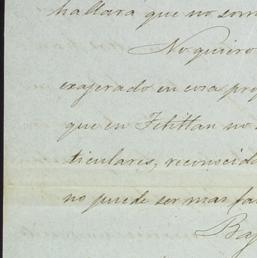 hallará que no som
No quiero
exajerado en cosa pro
que en Tetitlan no
ticulares, reconocid
no puede ser mas fa
Baj